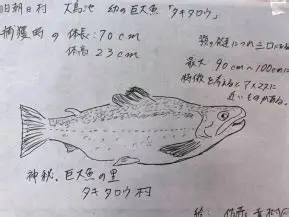 旧朝日村 大鳥池 幻の巨大魚「タキタロウ」
捕獲時の 体長:70cm
体高 23cm
最大 90cm〜100cmに
特徴を考えるとアメマスに
近いものがある。
神秘、巨大魚の里
タキタロウ村
絵